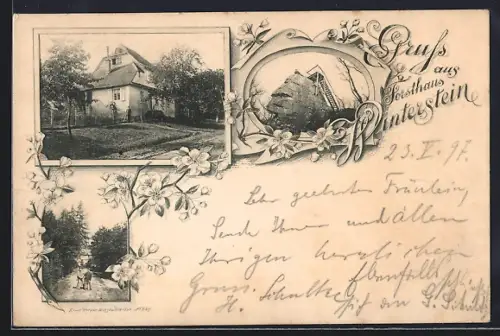 Gruß
aus
Forsthaus
Winterstein
23. V. 97.
Sehr geehrtes Fräulein,
Sende Ihnen und allen
Ihrigen herzlichen
Gruss. Ebenfalls
H. Schultze
G. Schultze